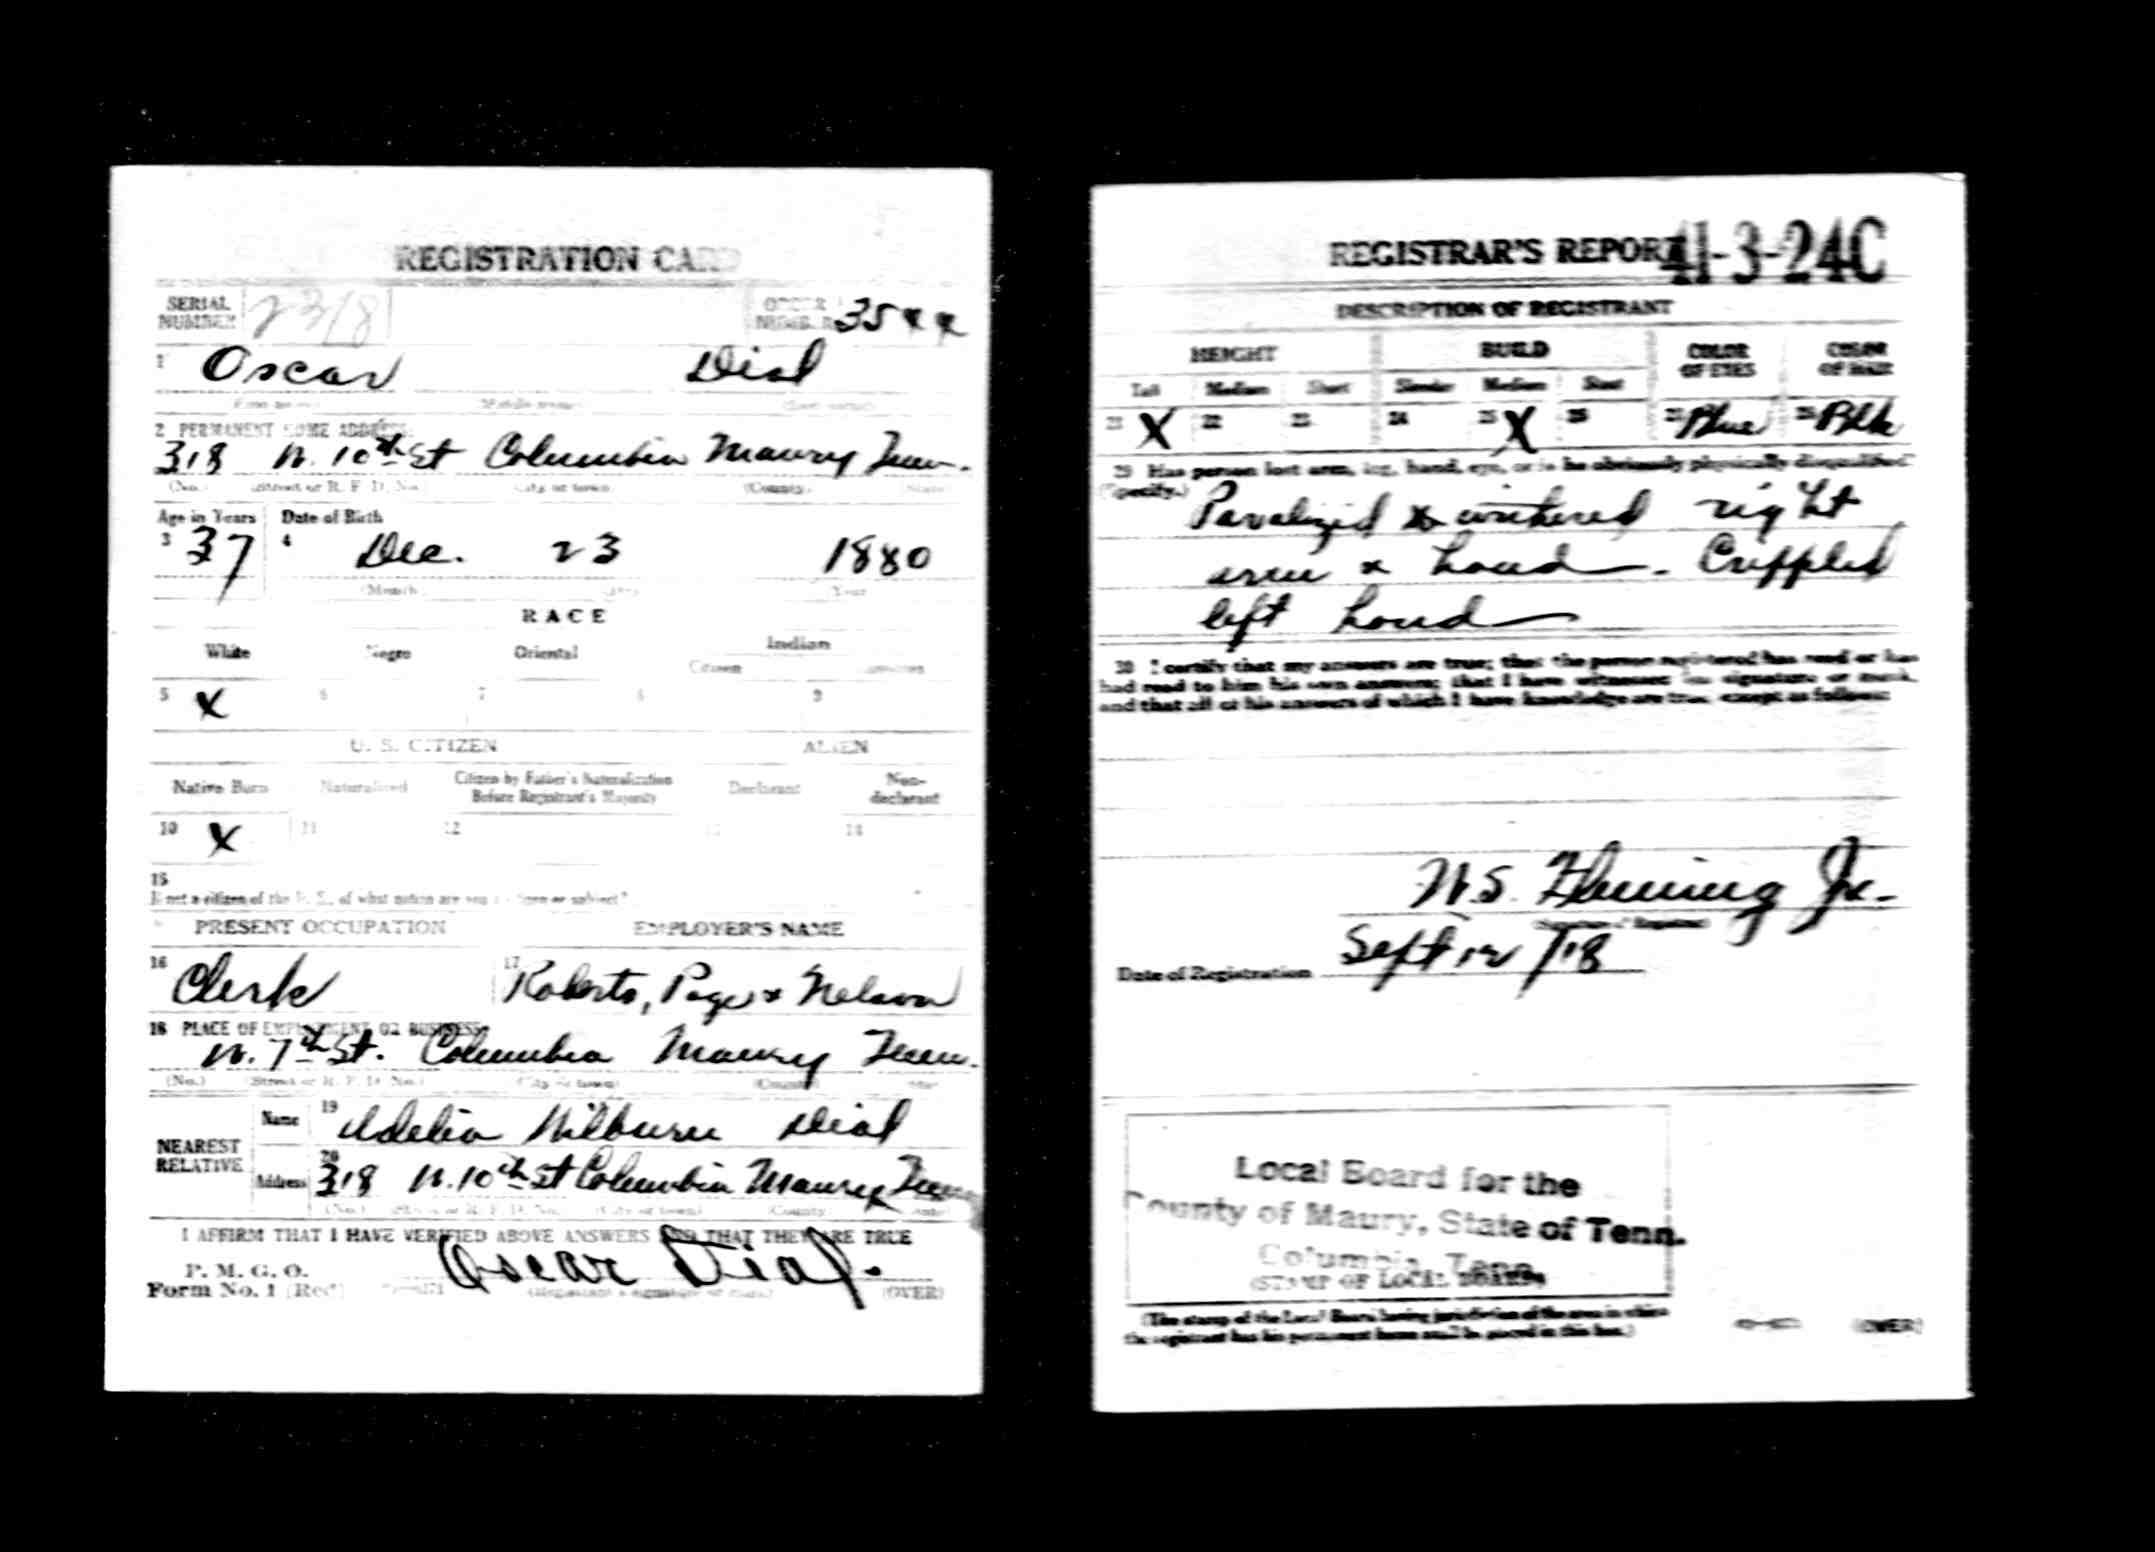 REGISTRATION CARD
SERIAL NUMBER 2318 ORDER NUMBER 3544
1 Oscar Dial
(First name) (Middle name) (Last name)
2 PERMANENT HOME ADDRESS:
318 W. 10th St Columbia Maury Tenn.
(No.) (Street or R. F. D. No.) (City or town) (County) (State)
Age in Years Date of Birth
3 37 4 Dec. 23 1880
(Month) (Day) (Year)
RACE
White Negro Oriental Indian
Citizen Noncitizen
5 X 6 7 8 9
U. S. CITIZEN ALIEN
Native Born Naturalized Citizen by Father's Naturalization Before Registrant's Majority Declarant Non-declarant
10 X 11 12 13 14
15
If not a citizen of the U. S., of what nation are you a citizen or subject?
PRESENT OCCUPATION EMPLOYER'S NAME
16 Clerk 17 Roberts, Page & Nelson
18 PLACE OF EMPLOYMENT OR BUSINESS:
W. 7th St. Columbia Maury Tenn.
(No.) (Street or R. F. D. No.) (City or town) (County) (State)
NEAREST RELATIVE Name 19 Adelia Wilburn Dial
Address 20 318 W. 10th St Columbia Maury Tenn
(No.) (Street or R. F. D. No.) (City or town) (County) (State)
I AFFIRM THAT I HAVE VERIFIED ABOVE ANSWERS AND THAT THEY ARE TRUE
P. M. G. O.
Form No. 1 (Red) Oscar Dial.
(Registrant's signature or mark) (OVER)
REGISTRAR'S REPORT 41-3-24C
DESCRIPTION OF REGISTRANT
HEIGHT BUILD COLOR OF EYES COLOR OF HAIR
Tall Medium Short Slender Medium Stout
21 X 22 23 24 25 X 26 27 Blue 28 Blk
29 Has person lost arm, leg, hand, eye, or is he obviously physically disqualified?
(Specify.) Paralized & withered right
arm & hand. Crippled
left hand
30 I certify that my answers are true; that the person registered has read or has
had read to him his own answers; that I have witnessed his signature or mark,
and that all of his answers of which I have knowledge are true, except as follows:
W. S. Fleming Jr.
(Signature of Registrar)
Date of Registration Sept 12/18
Local Board for the
County of Maury, State of Tenn.
Columbia, Tenn.
(STAMP OF LOCAL BOARD)
(The stamp of the Local Board having jurisdiction of the area in which
the registrant has his permanent home shall be placed in this box.)
(OVER)